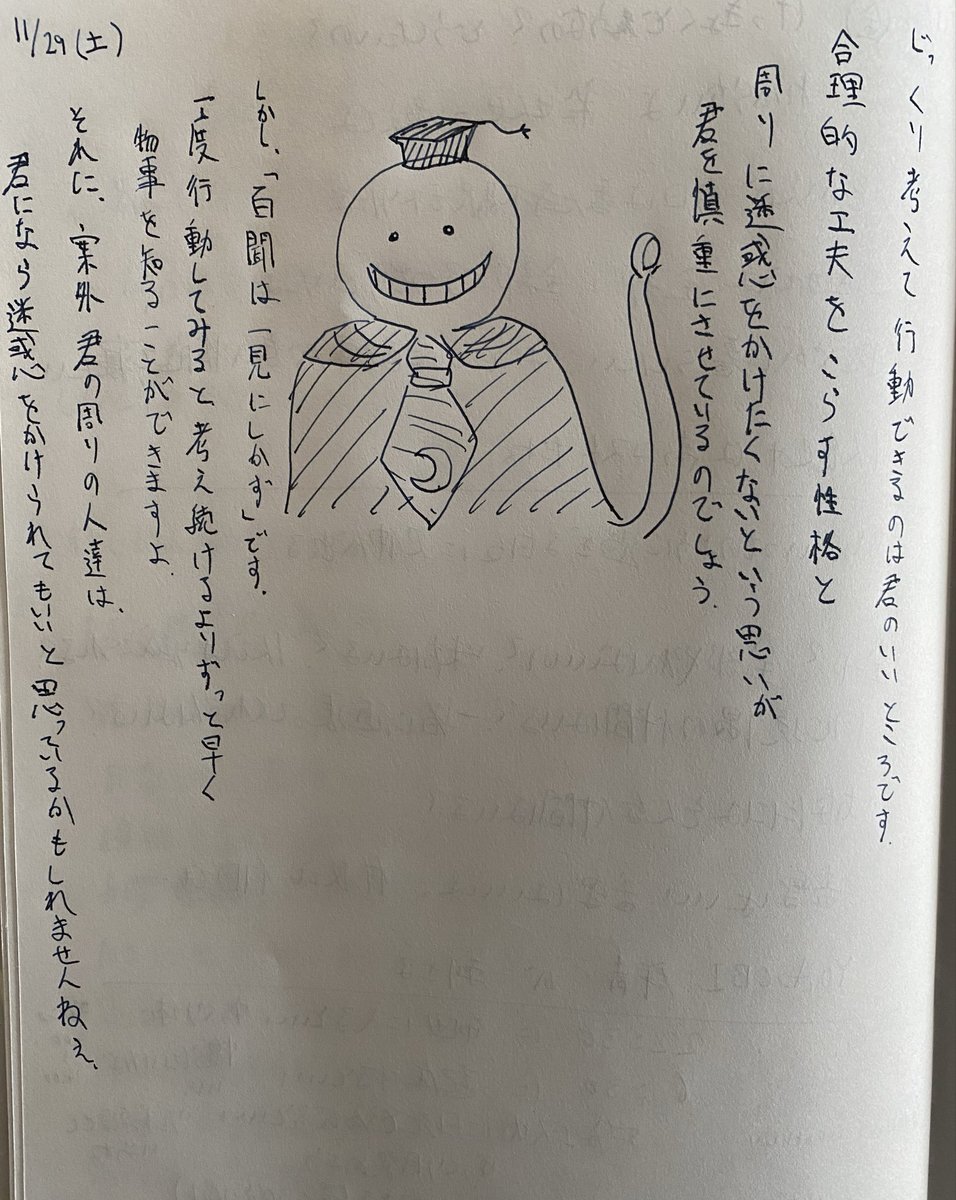 じっくり考えて行動できるのは君のいいところです.
合理的な工夫をこらす性格と
周りに迷惑をかけたくないという思いが
君を慎重にさせているのでしょう.
しかし、「百聞は一見にしかず」です.
一度行動してみると、考え続けるよりずっと早く
物事を知ることができますよ.
それに、案外君の周りの人達は、
君になら迷惑をかけられてもいいと思っているかもしれませんねぇ.
11/29(土)